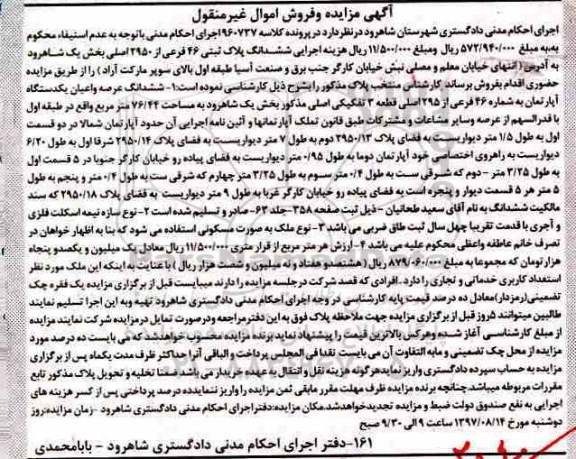 آگهی مزایده وفروش اموال غیرمنقول
اجرای احکام مدنی دادگستری شهرستان شاهرود درنظردارد درپرونده کلاسه ۹۶۰۷۳۷اجرای احکام مدنی باتوجه به عدم استیفاء محکوم
به،به مبلغ ۵۷۲/۹۴۰/۰۰۰ ریال ومبلغ ۱۱/۵۰۰/۰۰۰ ریال هزینه اجرایی ششدانگ پلاک ثبتی ۴۶ فرعی از ۲۹۵۰ اصلی بخش یک شاهرود
به آدرس (انتهای خیابان معلم و مصلی نبش خیابان کارگر جنب برق و صنعت آسیا طبقه اول بالای سوپر مارکت آراد ) را از طریق مزایده
حضوری اقدام بفروش برساند. کارشناس منتخب پلاک مذکور را بشرح ذیل کارشناسی نموده است: ۱- ششدانگ عرصه واعیان یکدستگاه
آپارتمان به شماره ۴۶ فرعی از ۲۹۵ اصلی قطعه ۳ تفکیکی اصلی مذکور بخش یک شاهرود به مساحت ۷۶/۴۴ متر مربع واقع در طبقه اول
با قدرالسهم از عرصه وسایر مشاعات و مشترکات طبق قانون تملک آپارتمانها و آئین نامه اجرایی آن حدود آپارتمان شمالا در دو قسمت
اول به طول ۱/۵ متر دیواریست به فضای پلاک ۲۹۵۰/۱۳ دوم به طول ۷ متر دیواریست به فضای پلاک ۲۹۵۰/۱۴ شرقا اول به طول ۶/۲۰
دیواریست به راهروی اختصاصی خود آپارتمان دوما به طول ۰/۹۵ متر دیواریست به فضای پیاده رو خیابان کارگر جنوبا در ۵ قسمت اول
به طول ۳/۲۵ متر - دوم که شرقی ست به طول ۰/۴ متر سوم به طول ۳/۲۵ متر چهارم که شرقی ست به طول ۰/۴ متر و پنجم به طول
۵ متر هر ۵ قسمت دیوار و پنجره است به فضای پیاده رو خیابان کارگر غربا به طول ۹ متر دیواریست به فضای پلاک ۲۹۵۰/۱۸ که سند
مالکیت ششدانگ به نام آقای سعید طحانیان - ذیل ثبت صفحه ۳۵۸-جلد ۶۳- صادر و تسلیم شده است ۲- نوع سازه نیمه اسکلت فلزی
و آجری با قدمت تقریبا چهل سال ثبت طاق ضربی می باشد ۳- نوع ملک به صورت مسکونی استفاده می شود که بنا به اظهار خواهان در
تصرف خانم عاطفه واعظی محکوم علیه می باشد ۴- ارزش هر متر مربع از قرار متری ۱۱/۵۰۰/۰۰۰ ریال معادل یک میلیون و یکصدو پنجاه
هزار تومان که مجموعا به مبلغ ۸۷۹/۰۶۰/۰۰۰ ریال (هشتصدو هفتاد و نه میلیون و شصت هزار ریال ) با عنایت به اینکه این ملک مورد نظر
استعداد کاربری خدماتی و تجاری را دارد..افرادی که قصد شرکت درجلسه مزایده را دارند میبایست قبل از برگزاری مزایده یک فقره چک
تضمینی(رمزدار)معادل ده درصد قیمت پایه کارشناسی در وجه اجرای احکام مدنی دادگستری شاهرود تهیه وبه این اجرا تسلیم نمایند
طالبین میتوانند ۵روز قبل از برگزاری مزایده جهت ملاحظه پلاک فوق به این دفترمراجعه ودرصورت تمایل درمزایده شرکت نمایند مزایده
از مبلغ کارشناسی آغاز شده وهرکس بالاترین قیمت را پیشنهاد نماید برنده مزایده محسوب خواهدشد که می بایست ده درصد مورد
مزایده از محل چک تضمینی و مابه التفاوت آن می بایست نقدا فی المجلس پرداخت و الباقی آنرا حداکثر ظرف مدت یکماه پس از برگزاری
مزایده به حساب سپرده دادگستری واریز نماید هرگونه هزینه نقل و انتقال به عهده خریدار می باشد ضمنا تخلیه و تحویل پلاک مذکور تابع
مقررات مربوطه میباشد چنانچه برنده مزایده ظرف مهلت مقرر مابقی ثمن مزایده را واریز ننماید ده درصد پرداختی پس از کسر هزینه های
اجرایی به نفع صندوق دولت ضبط و مزایده تجدیدخواهدشد.مکان مزایده:دفتراجرای احکام مدنی دادگستری شاهرود -زمان مزایده:روز
دوشنبه مورخ ۱۳۹۷/۰۸/۱۴ ساعت ۹ الی ۹/۳۰ صبح
۱۶۱-دفتر اجرای احکام مدنی دادگستری شاهرود - بابامحمدی